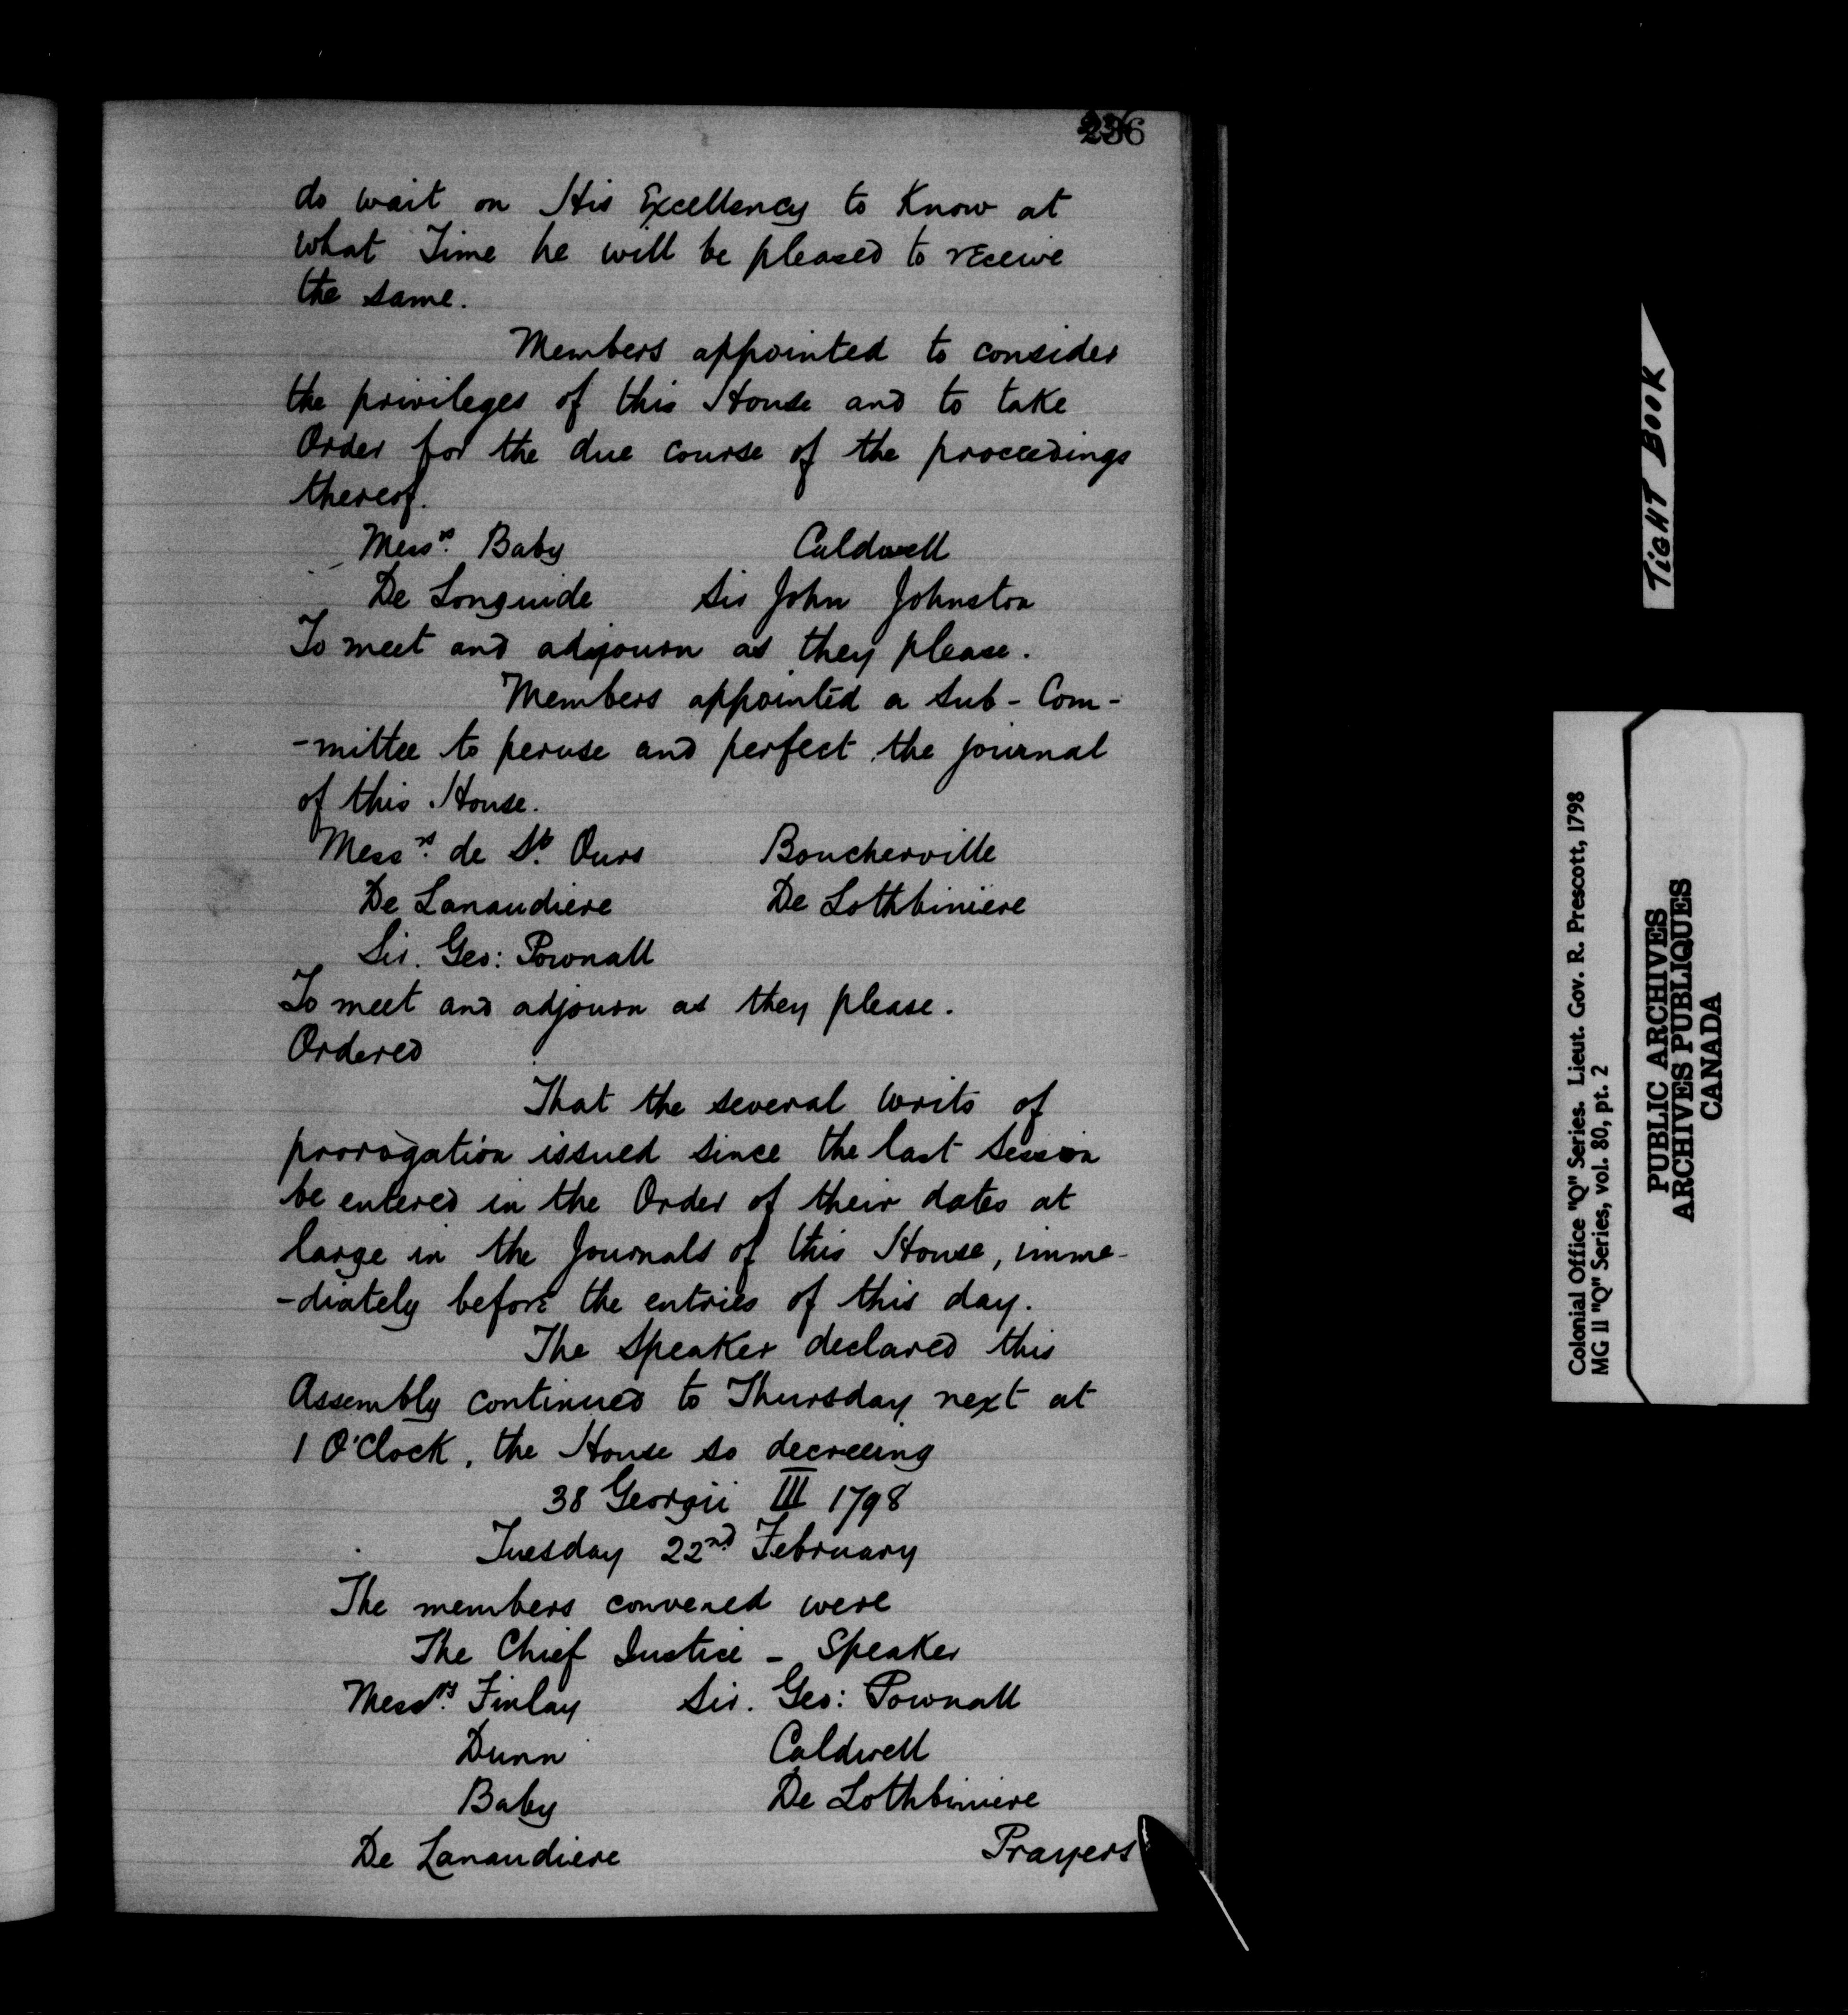 236
do wait on His Excellency to Know at
what Time he will be pleased to receive
the same.
Members appointed to consider
the privileges of this House and to take
Order for the due course of the proceedings
thereof.
Messrs. Baby Caldwell
De Longuide Sir John Johnston
To meet and adjourn as they please.
Members appointed a Sub-Com-
-mittee to peruse and perfect the journal
of this House.
Messrs. de St. Ours Boucherville
De Lanaudiere De Lothbiniere
Sir. Geo: Pownall
To meet and adjourn as they please.
Ordered
That the several Writs of
prorogation issued since the last Session
be entered in the Order of their dates at
large in the Journals of this House, imme-
-diately before the entries of this day.
The Speaker declared this
Assembly continued to Thursday next at
1 O'Clock, the House so decreeing
38 Georgii III 1798
Tuesday 22nd February
The members convened were
The Chief Justice - Speaker
Messrs. Finlay Sir. Geo: Pownall
Dunn Caldwell
Baby De Lothbiniere
De Lanaudiere
Prayers
TIGHT BOOK
Colonial Office "Q" Series. Lieut. Gov. R. Prescott, 1798
MG 11 "Q" Series, vol. 80, pt. 2
PUBLIC ARCHIVES
ARCHIVES PUBLIQUES
CANADA